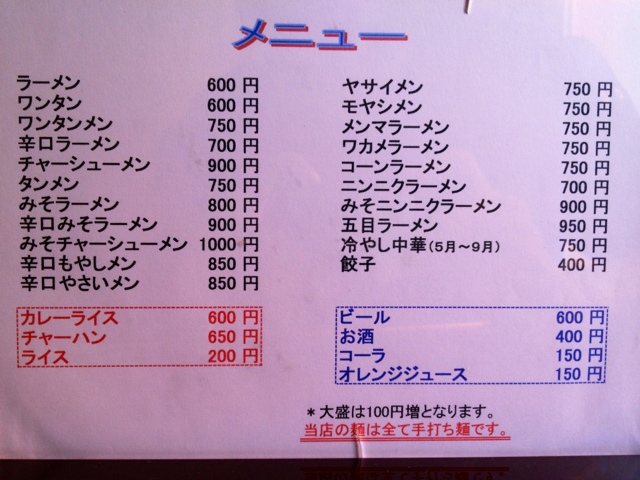 メニュー
ラーメン 600 円
ワンタン 600 円
ワンタンメン 750 円
辛口ラーメン 700 円
チャーシューメン 900 円
タンメン 750 円
みそラーメン 800 円
辛口みそラーメン 900 円
みそチャーシューメン 1000 円
辛口もやしメン 850 円
辛口やさいメン 850 円
カレーライス 600 円
チャーハン 650 円
ライス 200 円
ヤサイメン 750 円
モヤシメン 750 円
メンマラーメン 750 円
ワカメラーメン 750 円
コーンラーメン 750 円
ニンニクラーメン 700 円
みそニンニクラーメン 900 円
五目ラーメン 950 円
冷やし中華(5月～9月) 750 円
餃子 400 円
ビール 600 円
お酒 400 円
コーラ 150 円
オレンジジュース 150 円
＊大盛は100円増となります。
当店の麺は全て手打ち麺です。